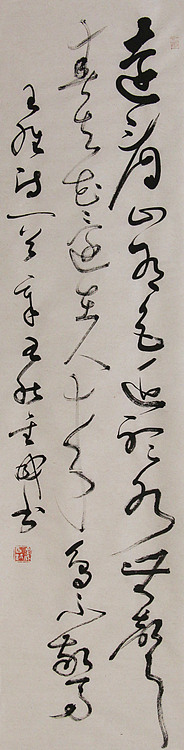 遠看山有色近聽水無聲
春去花還在人來鳥不驚
王維詩一首 書